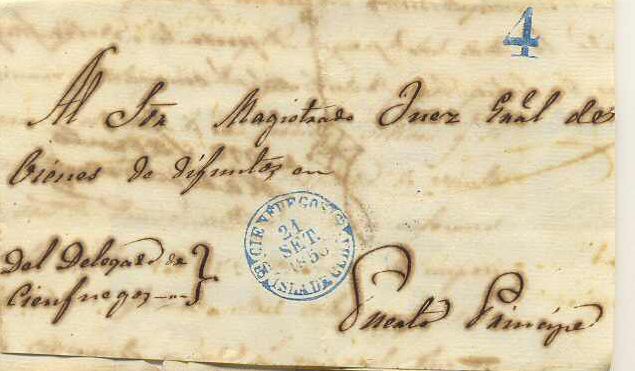 4
Al Sor Magistrado Juez Gral de
bienes de difuntos en
CIENFUEGOS
21
SET.
ISLA DE CUBA
Del Delegado de
Cienfuegos
Puerto Principe